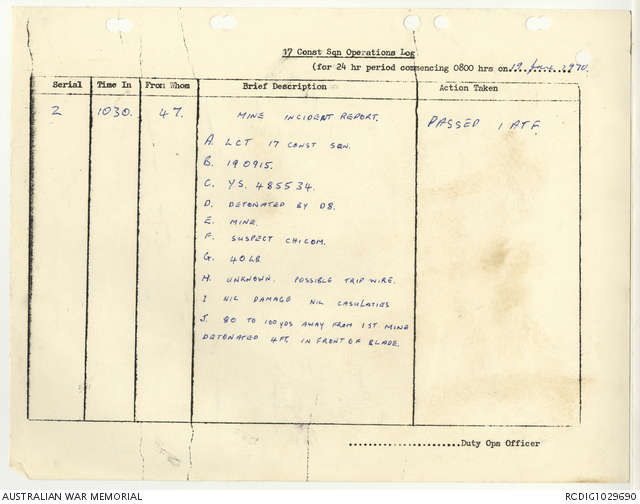 17 Const Sqn Operations Log
(for 24 hr period commencing 0800 hrs on 19 June 1970.
Serial Time In From Whom Brief Description Action Taken
2 1030. 47. MINE INCIDENT REPORT. PASSED 1 ATF.
A. LCT 17 CONST SQN.
B. 190915.
C. Y.S. 485534.
D. DETONATED BY D8.
E. MINE.
F. SUSPECT CHICOM.
G. 40 LB
H. UNKNOWN. POSSIBLE TRIP WIRE.
I NIL DAMAGE NIL CASULATIES
J. 80 TO 100 YDS AWAY FROM 1ST MINE
DETONATED 4FT. IN FRONT OF BLADE.
....................Duty Ops Officer
AUSTRALIAN WAR MEMORIAL
RCDIG1029690